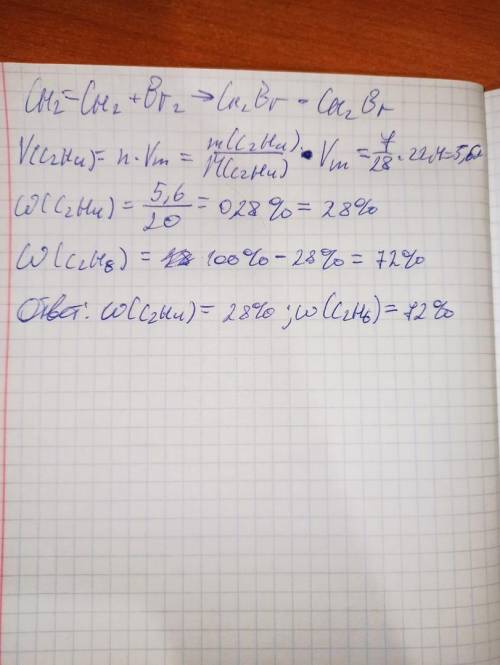 CH2=CH2 + Br2 → CH2Br - CH2Br
V(C2H4) = n · Vm = m(C2H4) / M(C2H4) · Vm = 7/28 · 22,4 = 5,6л
ω(C2H4) = 5,6/20 = 028% = 28%
ω(C2H6) = 100% - 28% = 72%
Ответ: ω(C2H4) = 28% ; ω(C2H6) = 72%